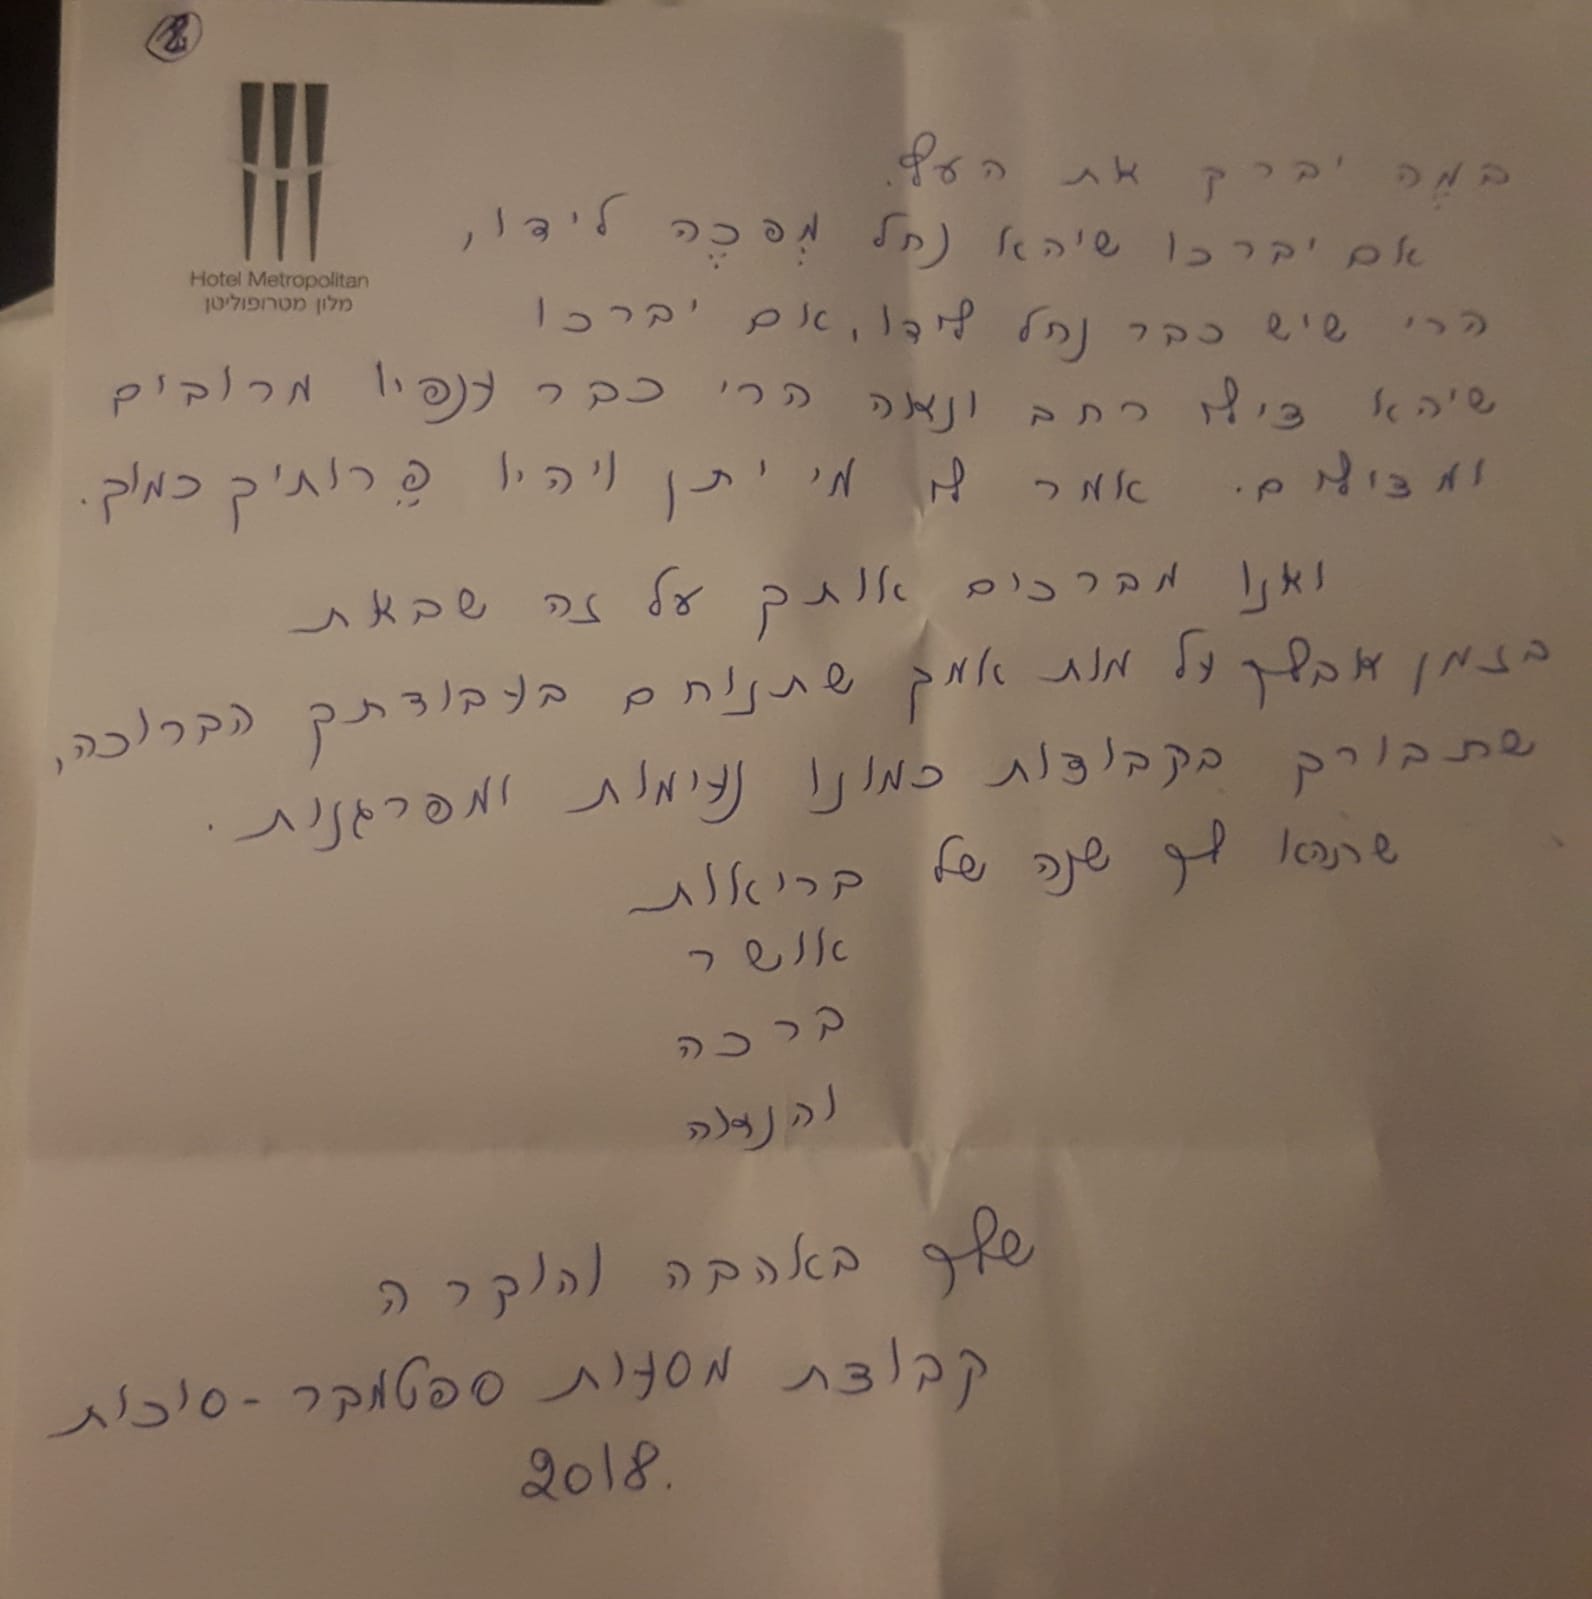 2
Hotel Metropolitan
מלון מטרופוליטן
במה יברך את העץ.
אם יברכו שיהא נחל מְפכֶּה לידו,
הרי שיש כבר נחל לידו, אם יברכו
שיהא צילו רחב ונאה הרי כבר ענפיו מרובים
ומצילים. אמר לו מי יתן ויהיו פֵּרותיך כמוך.
ואנו מברכים אותך על זה שבאת
בזמן אבלך על מות אמך שתנוחם בעבודתך הברוכה,
שתבורך בקבוצות כמונו נעימות ומפרגנות.
שתהא לך שנה של בריאות
אושר
ברכה
והנאה
שלך באהבה והוקרה
קבוצת מסעות ספטמבר - סוכות
2018.